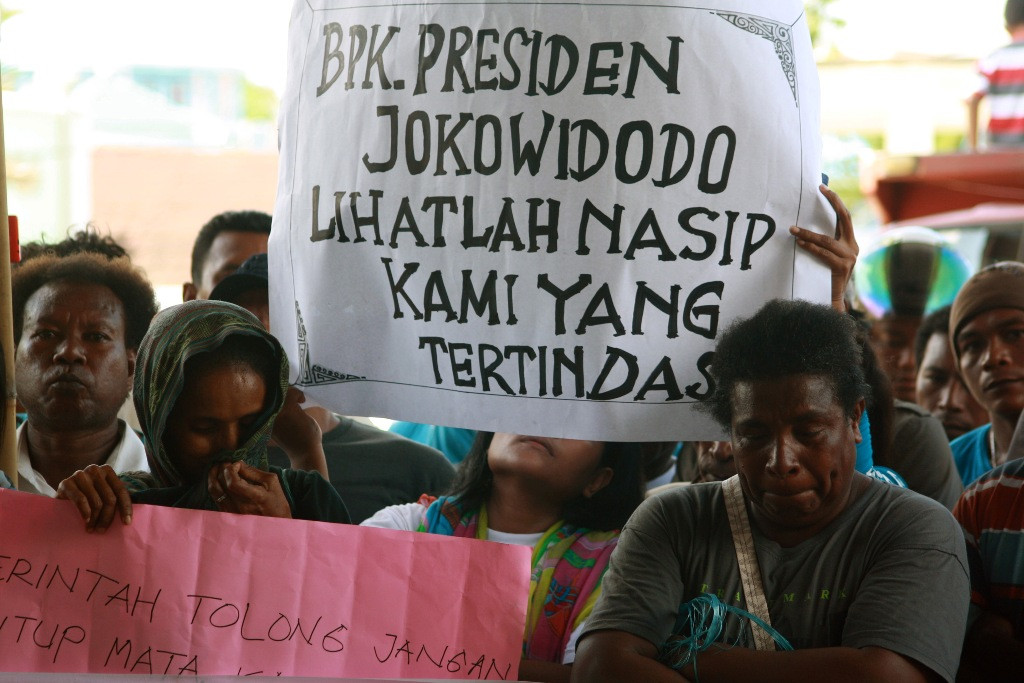 BPK. PRESIDEN
JOKOWIDODO
LIHATLAH NASIP
KAMI YANG
TERTINDAS
ERINTAH TOLONG JANGAN
NTUP MATA